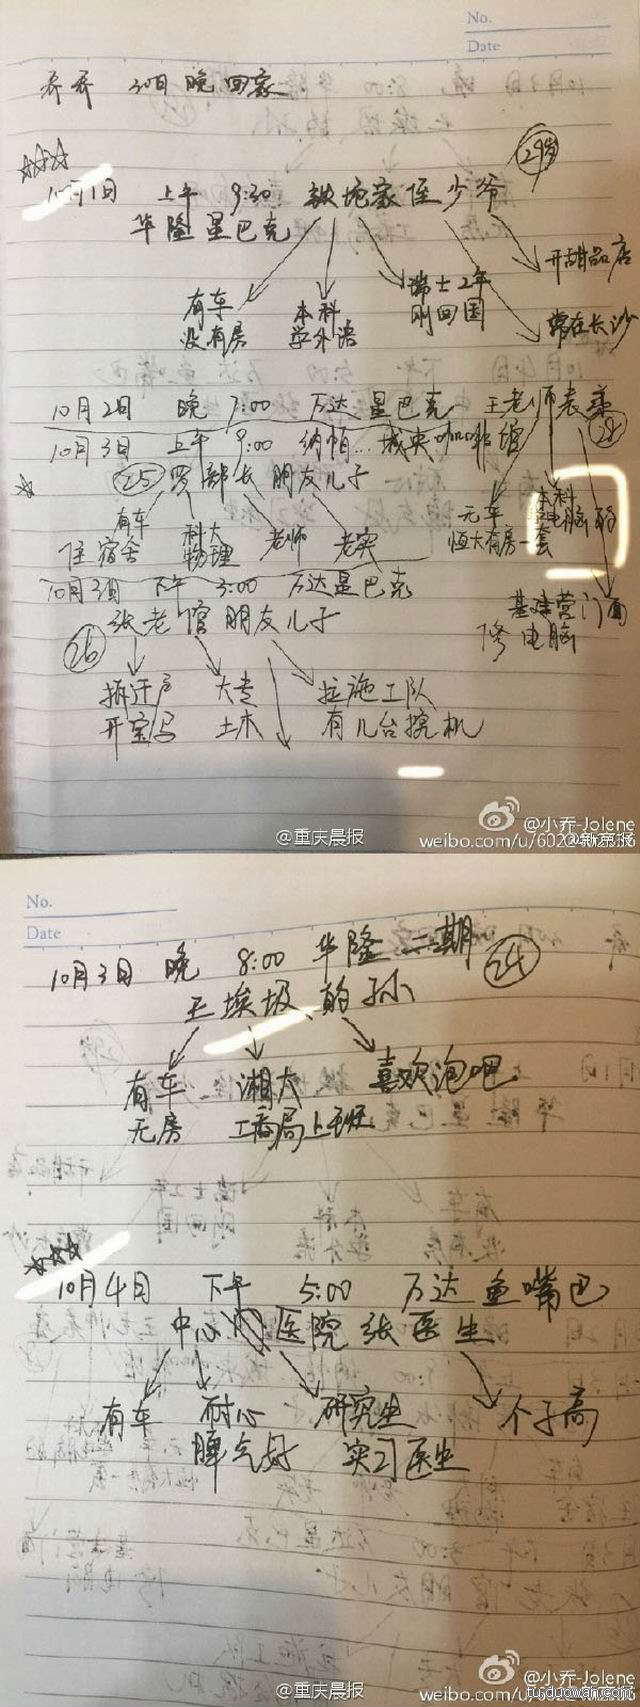 No.
Date
乔乔 30日 晚 回家
29岁
10月1日 上午 9:30 铁坨家侄少爷
华隆星巴克
有车
没有房
本科
学外语
瑞士2年
刚回国
开甜品店
常在长沙
10月2日 晚 7:00 万达星巴克 王老师表
28
10月3日 上午 9:00 纳帕...城央咖啡馆
25 罗部长 朋友儿子
有车
住宿舍
科大
物理
老师
老实
无车
恒大有房一套
本科
电脑
10月3日 下午 3:00 万达星巴克
26 张老倌 朋友儿子
基建营门面
修电脑
拆迁户
开宝马
大专
土木
拉施工队
有几台挖机
@重庆晨报
@小乔-Jolene
@新京报
No.
Date
10月3日 晚 8:00 华隆二期
24
王埃圾 的孙
有车
无房
湘大
工商局上班
喜欢泡吧
10月4日 下午 5:00 万达鱼嘴巴
中心医院 张医生
有车
耐心
脾气好
研究生
实习医生
个子高
@重庆晨报
@小乔-Jolene